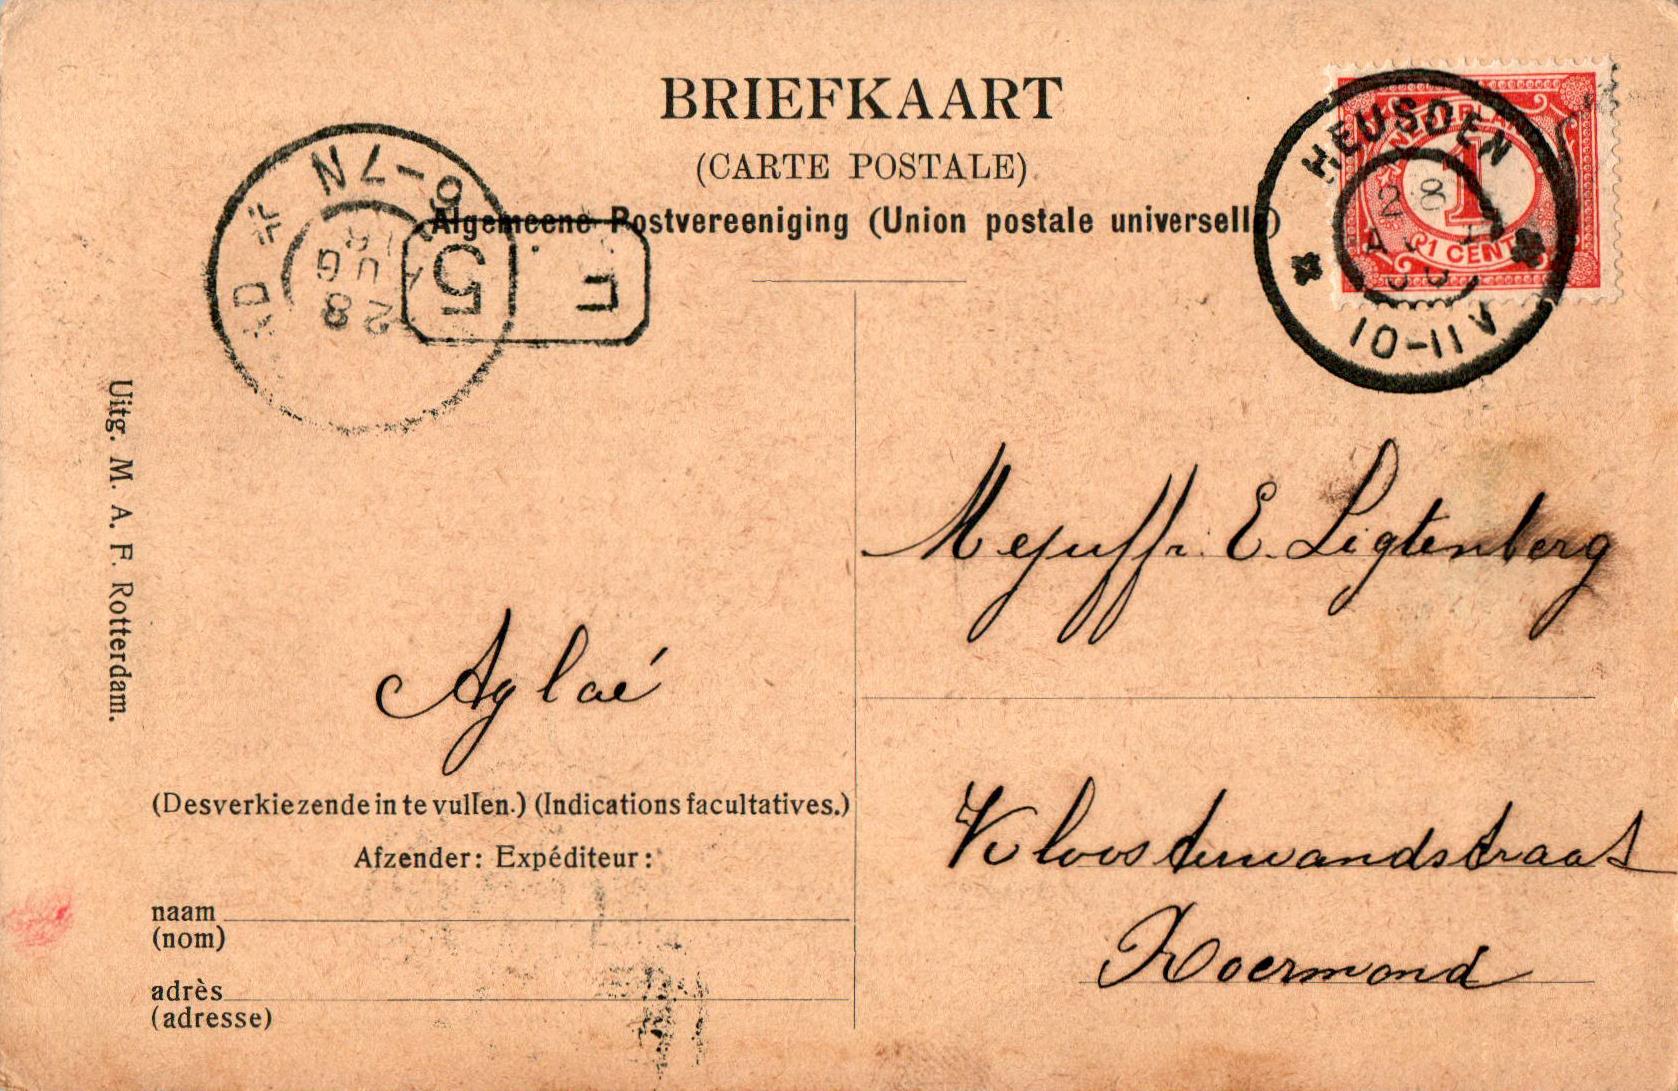 BRIEFKAART
(CARTE POSTALE)
Algemeene Postvereeniging (Union postale universelle)
HEUSDEN
28
10-11V
NEDERLAND
1
1 CENT
6-7N
28
UG
5
Uitg. M. A. F. Rotterdam.
Mejuffr. E. Ligtenberg
Aglaé
Kloosterwandstraat
Roermond
(Desverkiezende in te vullen.) (Indications facultatives.)
Afzender: Expéditeur:
naam
(nom)
adrès
(adresse)